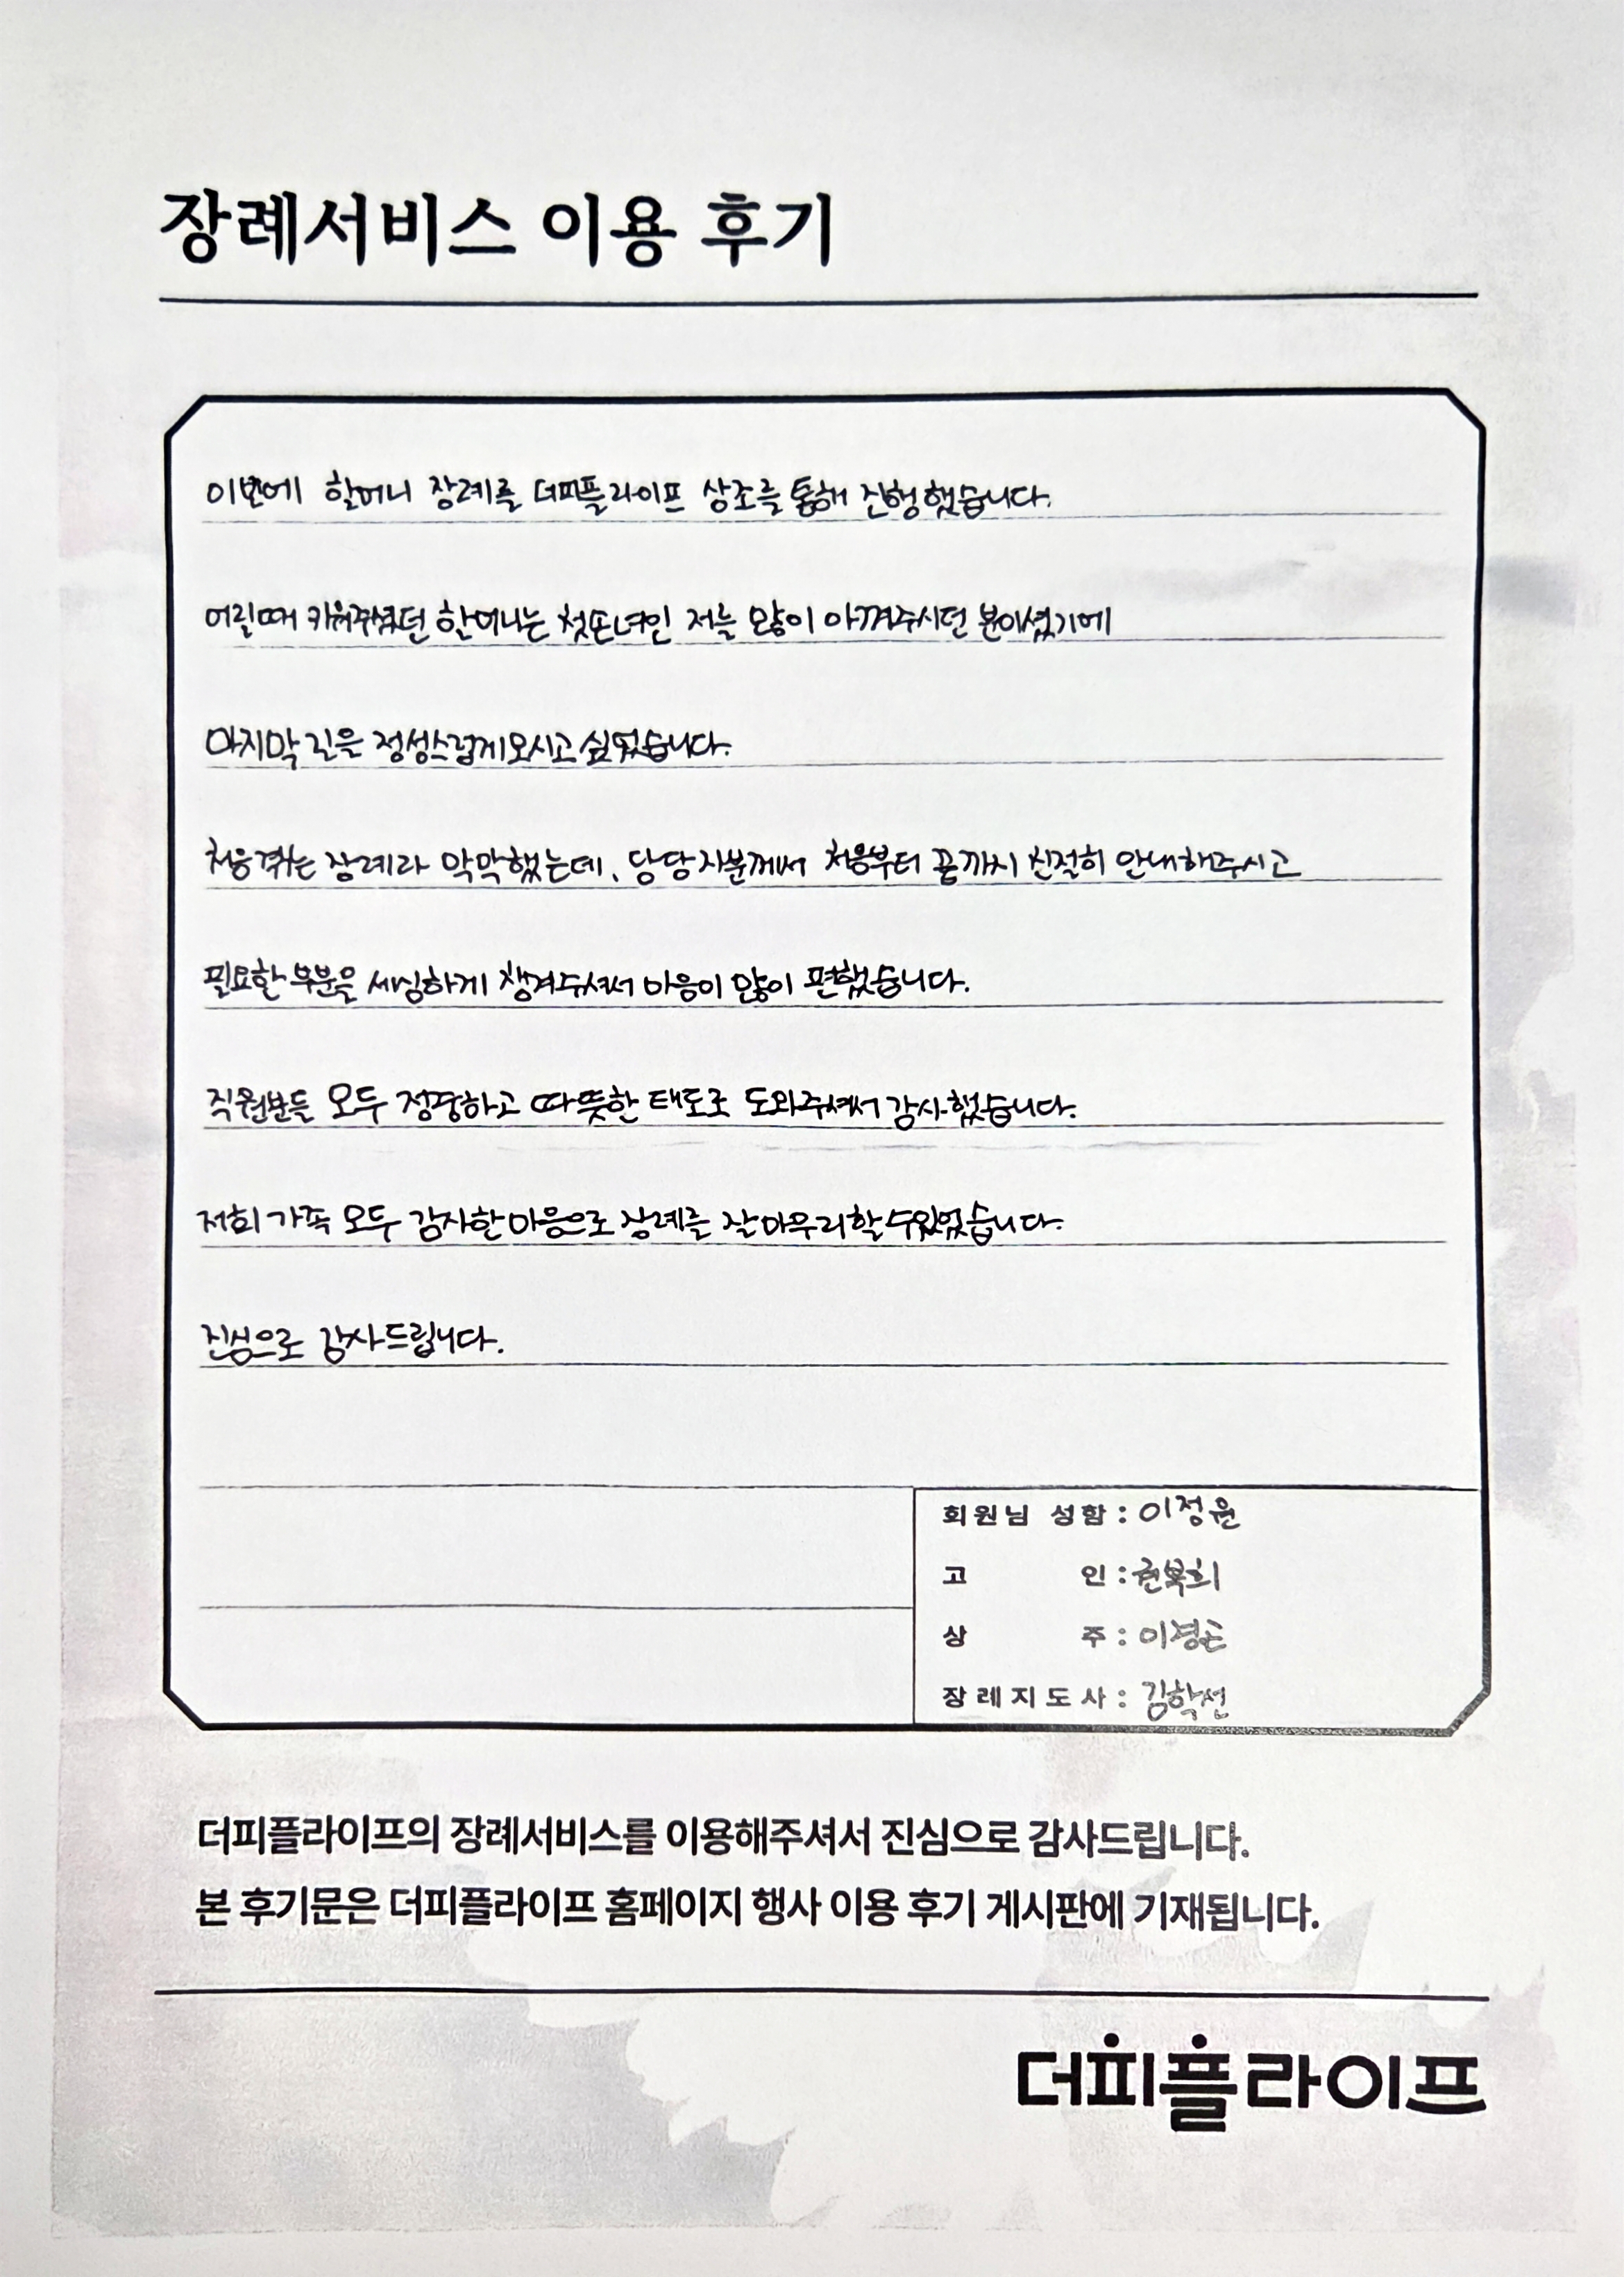 장례서비스 이용 후기
이번에 할머니 장례를 더피플라이프 상조를 통해 진행했습니다.
어릴때 키워주셨던 할머니는 첫손녀인 저를 많이 아껴주시던 분이셨기에
마지막 길을 정성스럽게모시고 싶었습니다.
처음 겪는 장례라 막막했는데, 담당자분께서 처음부터 끝까지 친절히 안내해주시고
필요한 부분을 세심하게 챙겨주셔서 마음이 많이 편했습니다.
직원분들 모두 정중하고 따뜻한 태도로 도와주셔서 감사했습니다.
저희 가족 모두 감사한 마음으로 장례를 잘 마무리할 수있었습니다.
진심으로 감사드립니다.
회원님 성함 : 이정윤
고 인 : 권복희
상 주 :
장례지도사 : 김학선
더피플라이프의 장례서비스를 이용해주셔서 진심으로 감사드립니다.
본 후기문은 더피플라이프 홈페이지 행사 이용 후기 게시판에 기재됩니다.
더피플라이프